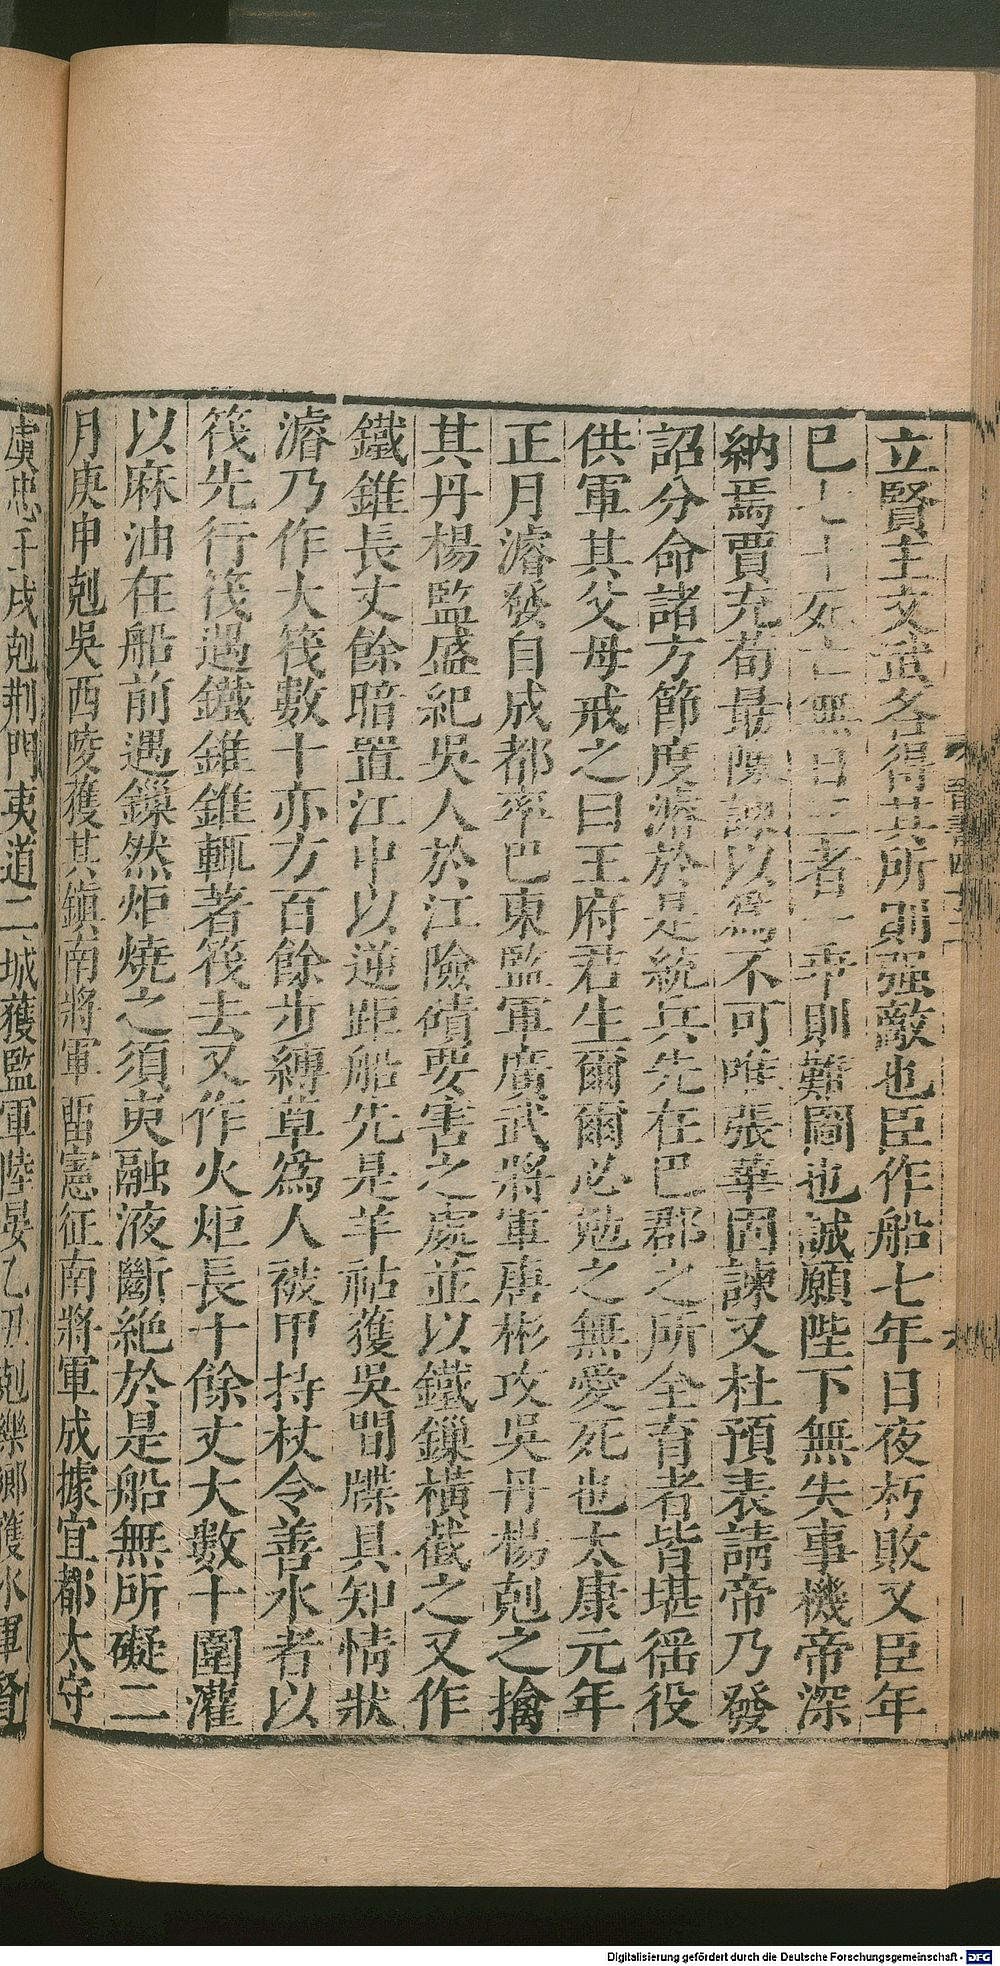 立賢主文武各得其所則强敵也臣作船七年日夜朽敗又臣年
巳七十死亡無日三者一乖則難圖也誠願陛下無失事機帝深
納焉賈充荀勗陳諫以爲不可唯張華固諫又杜預表請帝乃發
詔分命諸方節度濬於是統兵先在巴郡之所全育者皆堪徭役
供軍其父母戒之曰王府君生爾爾必勉之無愛死也太康元年
正月濬發自成都率巴東監軍廣武將軍唐彬攻吳丹楊剋之擒
其丹楊監盛紀吳人於江險磧要害之處並以鐵鏁橫截之又作
鐵錐長丈餘暗置江中以逆距船先是羊祜獲吳間諜具知情狀
濬乃作大筏數十亦方百餘步縛草爲人被甲持杖令善水者以
筏先行筏遇鐵錐錐輒著筏去又作火炬長十餘丈大數十圍灌
以麻油在船前遇鏁然炬燒之須臾融液斷絕於是船無所礙二
月庚申剋吳西陵獲其鎮南將軍留憲征南將軍成據宜都太守
虞忠壬戌剋荆門夷道二城獲監軍陸晏乙丑剋樂鄉獲水軍督
晉書四十二
Digitalisierung gefördert durch die Deutsche Forschungsgemeinschaft - DFG